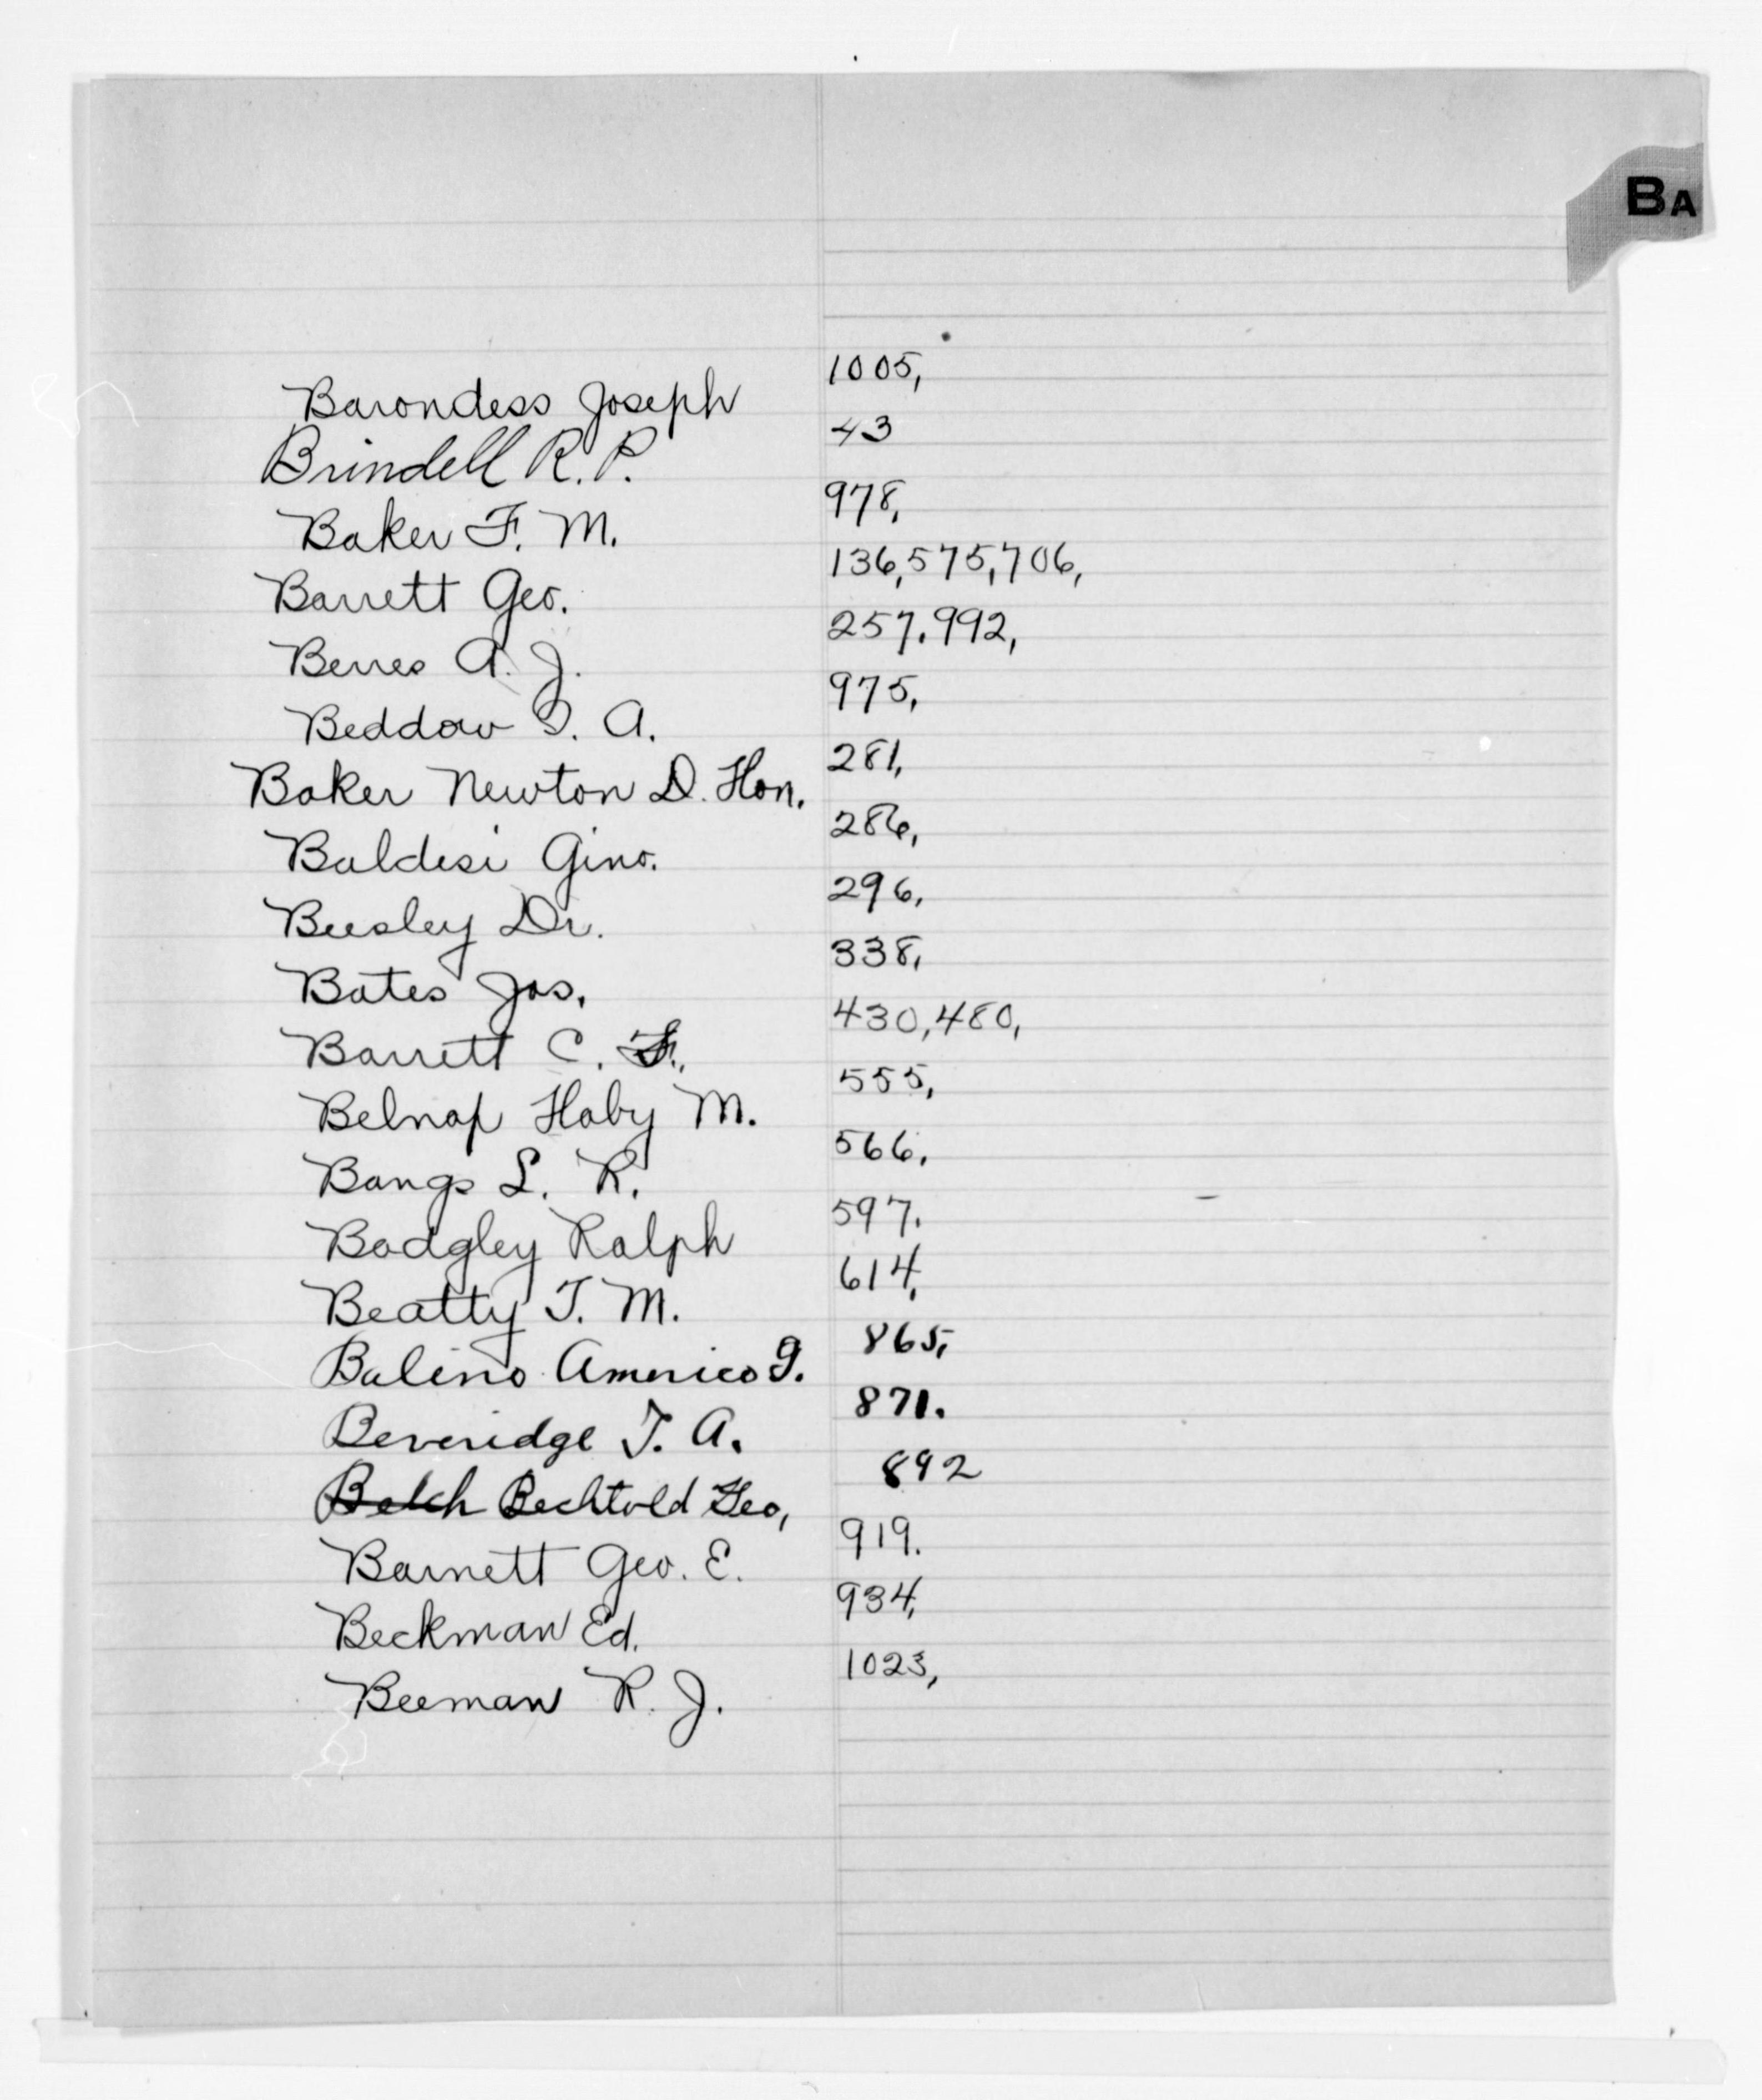 BA
Barondess Joseph 1005,
Brindell R. P. 43
Baker F. M. 978,
Barrett Geo. 136, 575, 706,
Berres A. J. 257. 992,
Beddow A. 975,
Baker Newton D. Hon. 281,
Baldesi Gino. 286,
Beesley Dr. 296,
Bates Jas. 338,
Barrett C. F. 430, 480,
Belnap Haby M. 555,
Bangs L. R. 566,
Badgley Ralph 597.
Beatty T. M. 614,
Balino Americo G. 865,
Beveridge T. A. 871.
Balch Bechtold Geo, 892
Barnett Geo. E. 919.
Beckman Ed. 934,
Beeman R. J. 1023,